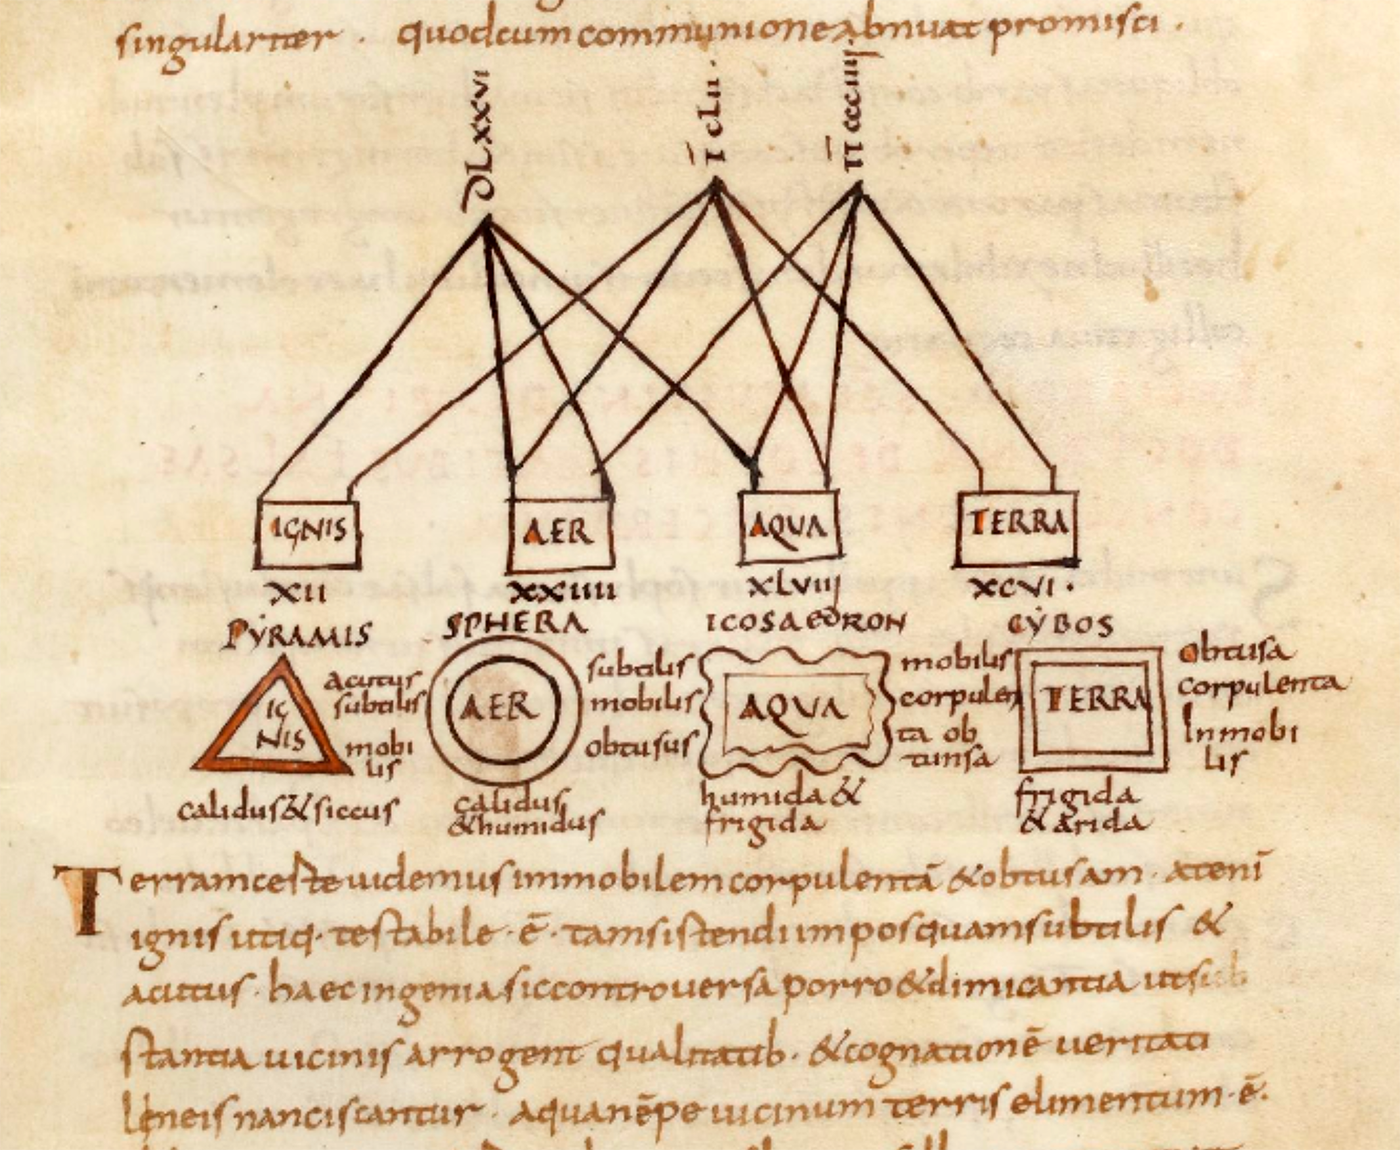 singulariter . quod cum communione abnuat promisci .
DLXXVI
I CLII .
II CCCIIII
IGNIS AER AQUA TERRA
XII XXIIII XLVIII XCVI .
PYRAMIS SPHERA ICOSAEDRON CYBOS
IGNIS
acutus
subtilis
mobilis
calidus & siccus
AER
subtilis
mobilis
obtusus
calidus
& humidus
AQUA
mobilis
corpulen
ta ob
tunsa
humida &
frigida
TERRA
obtusa
corpulenta
Inmobi
lis
frigida
& arida
Terram certe uidemus immobilem corpulentā & obtusam . at eni
ignis utiq. testabile . ē . tam sistendi impos quam subtilis &
acutus . haec ingenia sic controuersa porro & dimicantia ut sub
stantia uicinis arrogent qualitatib. & cognationē ueritati
leneis nanciscantur . aqua nēpe uicinum terris elimentum . ē .